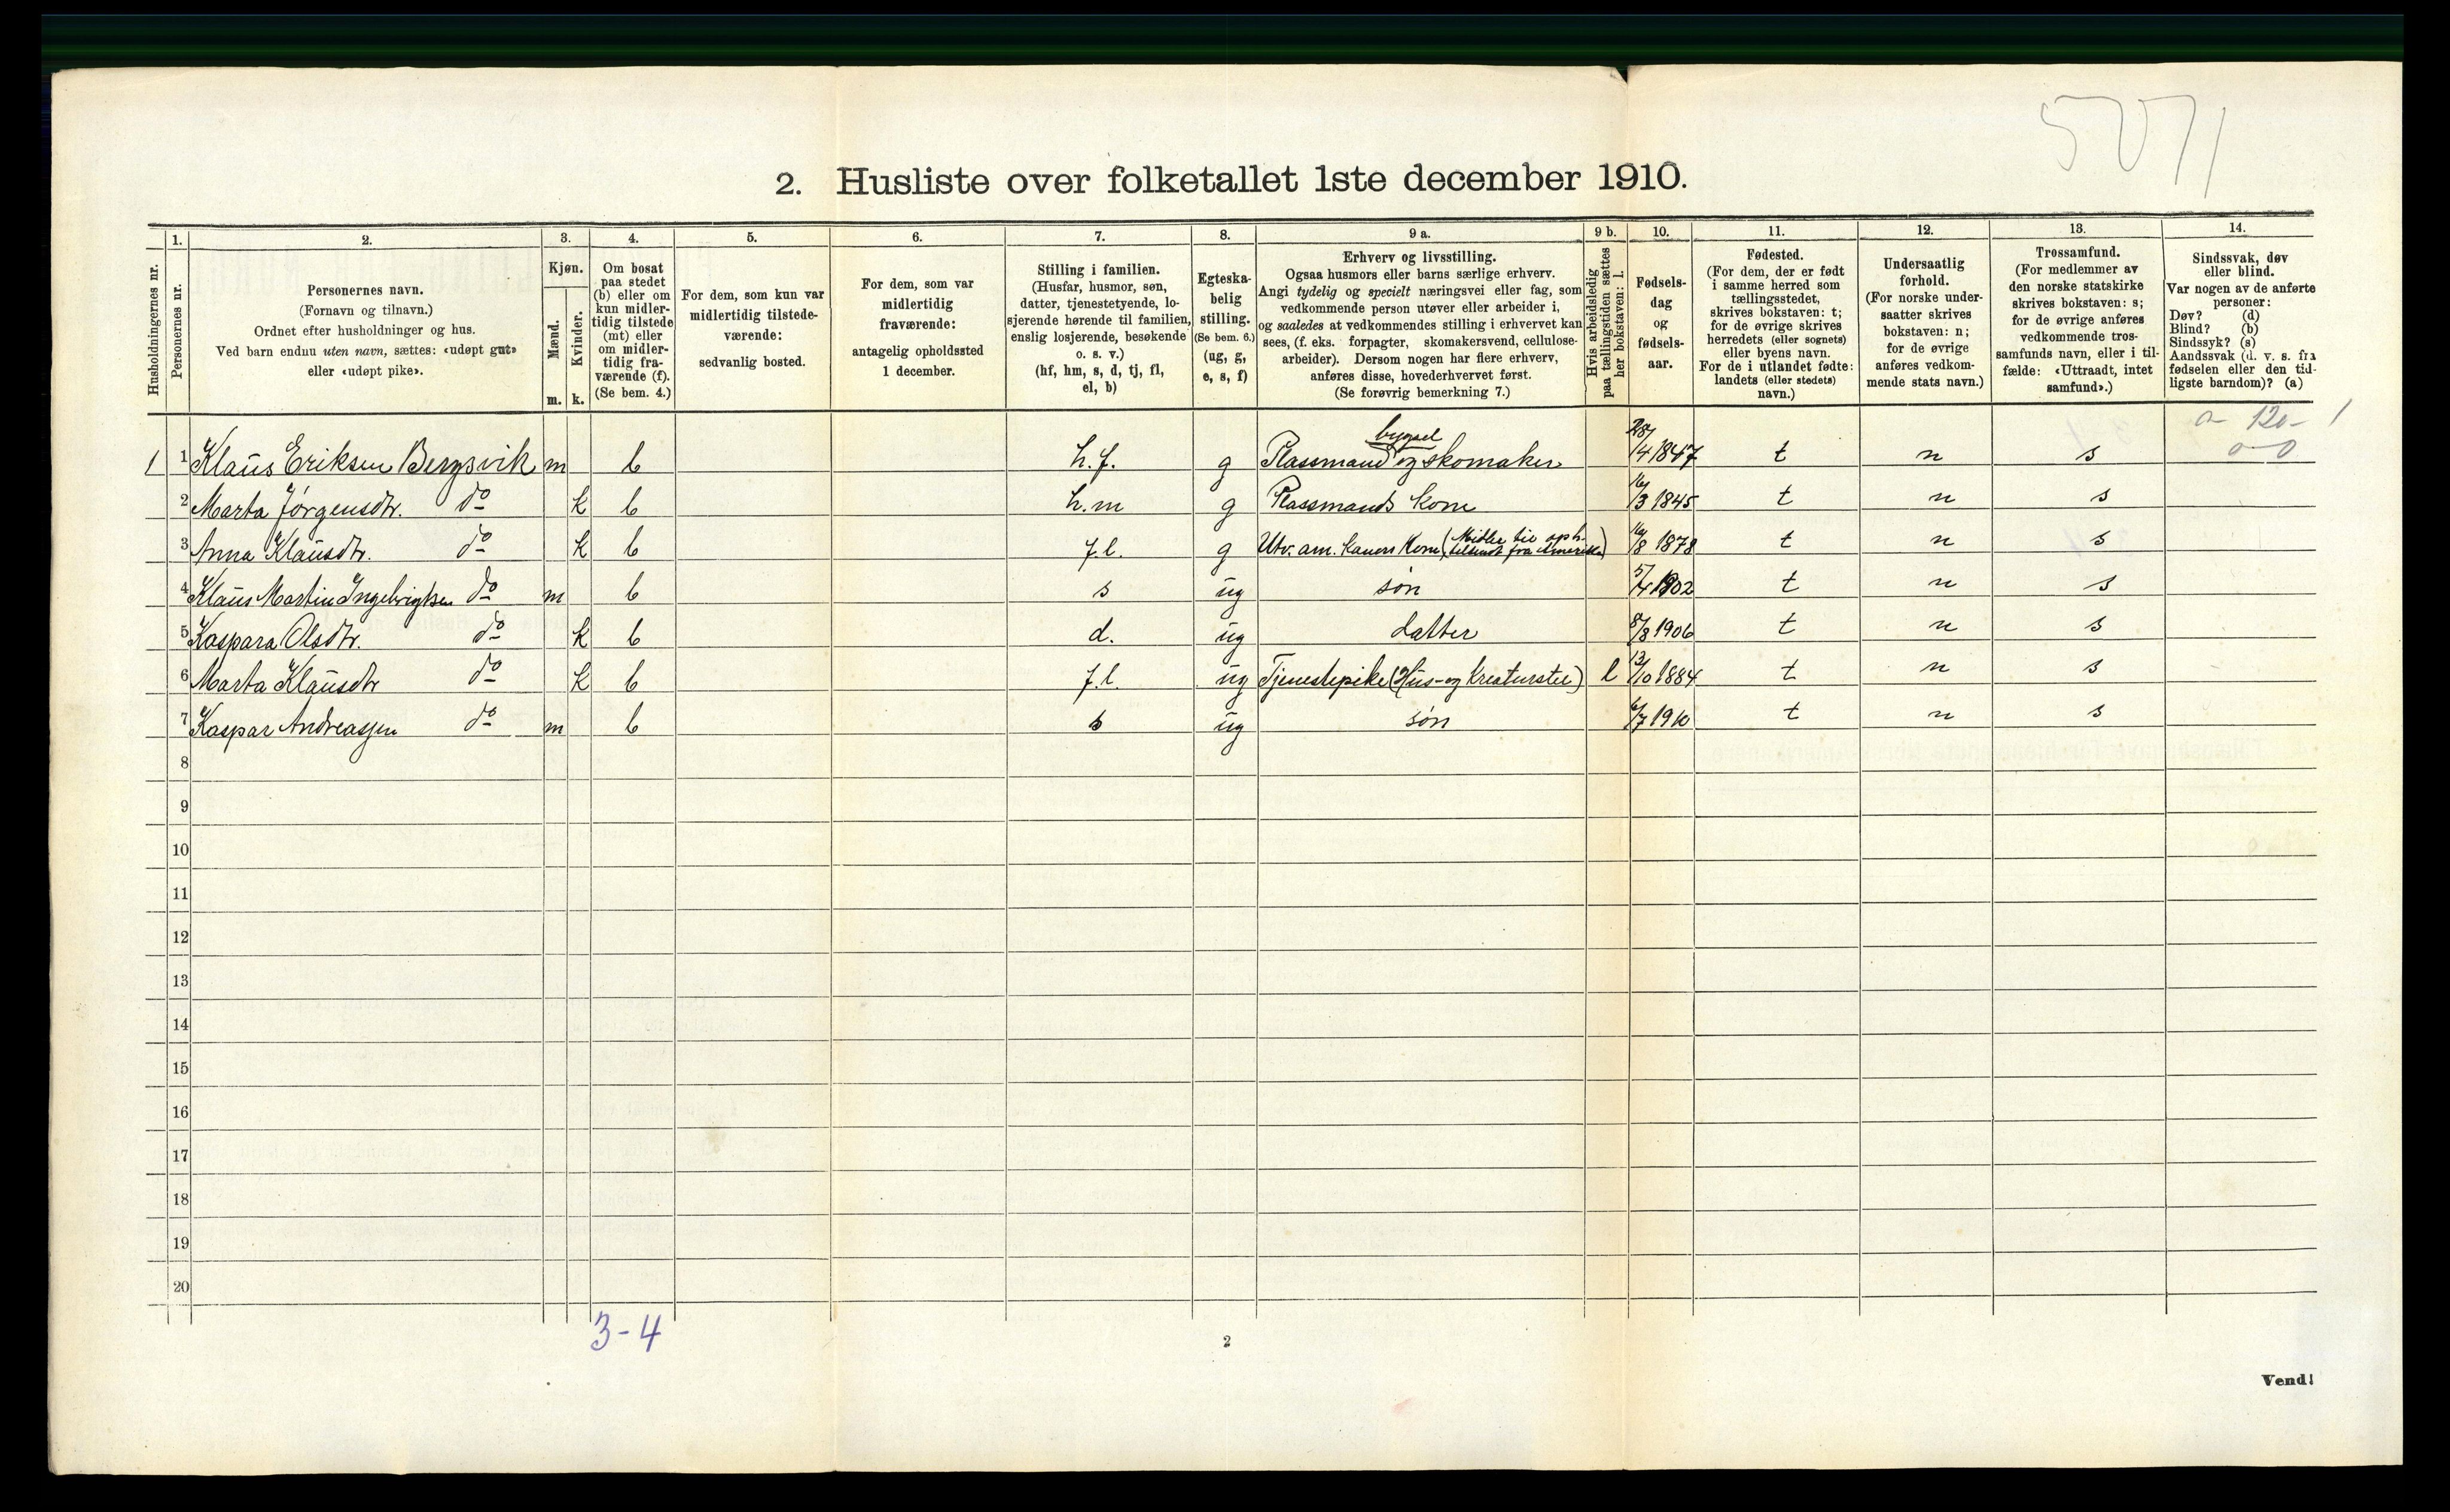 5071
2. Husliste over folketallet 1ste december 1910.
Husholdningernes nr.
1.
Personernes nr.
2.
Personernes navn.
(Fornavn og tilnavn.)
Ordnet efter husholdninger og hus.
Ved barn endnu uten navn, sættes: «udøpt gut»
eller «udøpt pike».
3.
Kjøn.
Mænd.
Kvinder.
m. k.
4.
Om bosat
paa stedet
(b) eller om
kun midler-
tidig tilstede
(mt) eller
om midler-
tidig fra-
værende (f).
(Se bem. 4.)
5.
For dem, som kun var
midlertidig tilstede-
værende:
sedvanlig bosted.
6.
For dem, som var
midlertidig
fraværende:
antagelig opholdssted
1 december.
7.
Stilling i familien.
(Husfar, husmor, søn,
datter, tjenestetyende, lo-
sjerende hørende til familien,
enslig losjerende, besøkende
o. s. v.)
(hf, hm, s, d, tj, fl,
el, b)
8.
Egteska-
belig
stilling.
(Se bem. 6.)
(ug, g,
e, s, f)
9 a.
Erhverv og livsstilling.
Ogsaa husmors eller barns særlige erhverv.
Angi tydelig og specielt næringsvei eller fag, som
vedkommende person utøver eller arbeider i,
og saaledes at vedkommendes stilling i erhvervet kan
sees, (f. eks. forpagter, skomakersvend, cellulose-
arbeider). Dersom nogen har flere erhverv,
anføres disse, hovederhvervet først.
(Se forøvrig bemerkning 7.)
9 b.
Hvis arbeidsledig
paa tællingstiden sættes
her bokstaven: l.
10.
Fødsels-
dag
og
fødsels-
aar.
11.
Fødested.
(For dem, der er født
i samme herred som
tællingsstedet,
skrives bokstaven: t;
for de øvrige skrives
herredets (eller sognets)
eller byens navn.
For de i utlandet fødte:
landets (eller stedets)
navn.)
12.
Undersaatlig
forhold.
(For norske under-
saatter skrives
bokstaven: n;
for de øvrige
anføres vedkom-
mende stats navn.)
13.
Trossamfund.
(For medlemmer av
den norske statskirke
skrives bokstaven: s;
for de øvrige anføres
vedkommende tros-
samfunds navn, eller i til-
fælde: «Uttraadt, intet
samfund».)
14.
Sindssvak, døv
eller blind.
Var nogen av de anførte
personer:
Døv? (d)
Blind? (b)
Sindssyk? (s)
Aandssvak (d. v. s. fra
fødselen eller den tid-
ligste barndom)? (a)
0 - 120 - 1
0 - 0
bygsel
1 1 Klaus Eriksen Bergsvik m b h.f. g Plassmand og skomaker 28/4 1847 t n s
2 Marta Jørgensdtr. do k b h.m g Plassmands kone 16/3 1845 t n s
3 Anna Klausdtr. do k b f.l. g Utv. am. kones Kone (Midler til oph. tilsendt fra Amerika) 16/8 1878 t n s
4 Klaus Martin Ingebrigtsen do m b s ug søn 5/4 1902 t n s
5 Kaspara Olsdtr. do k b d. ug datter 8/8 1906 t n s
6 Marta Klausdtr do k b f.l. ug Tjenestepike (Hus- og Kreaturstel) l 13/10 1884 t n s
7 Kaspar Andreassen do m b s ug søn 6/7 1910 t n s
8
9
10
11
12
13
14
15
16
17
18
19
20
3-4
2
Vend!